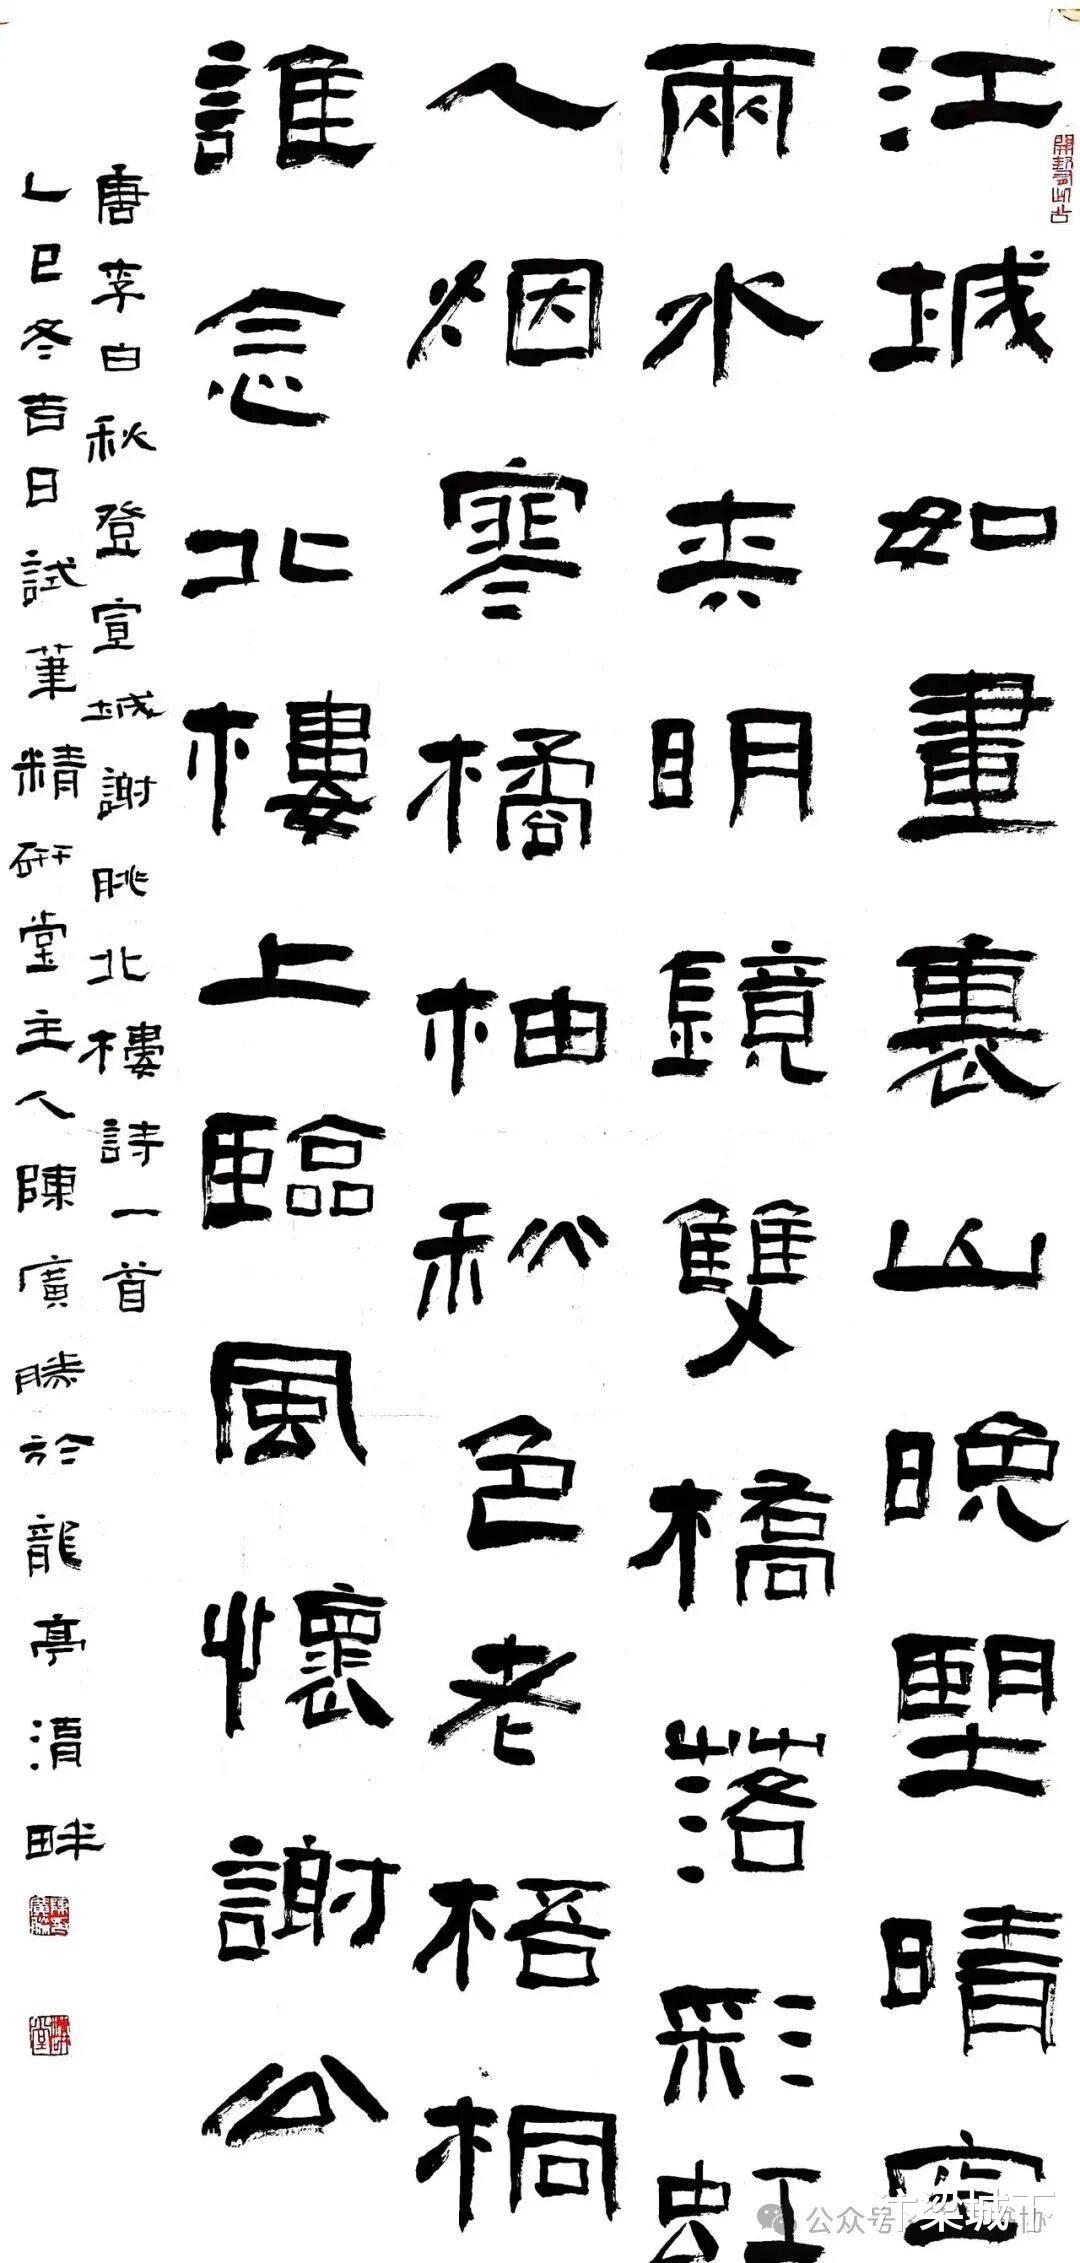 江城如畫裏山晚望晴空
兩水夾明鏡雙橋落彩虹
人烟寒橘柚秋色老梧桐
誰念北樓上臨風懷謝公
唐李白秋登宣城謝朓北樓詩一首
乙巳冬吉日試筆精研堂主人陳廣勝於龍亭湖畔
公众号